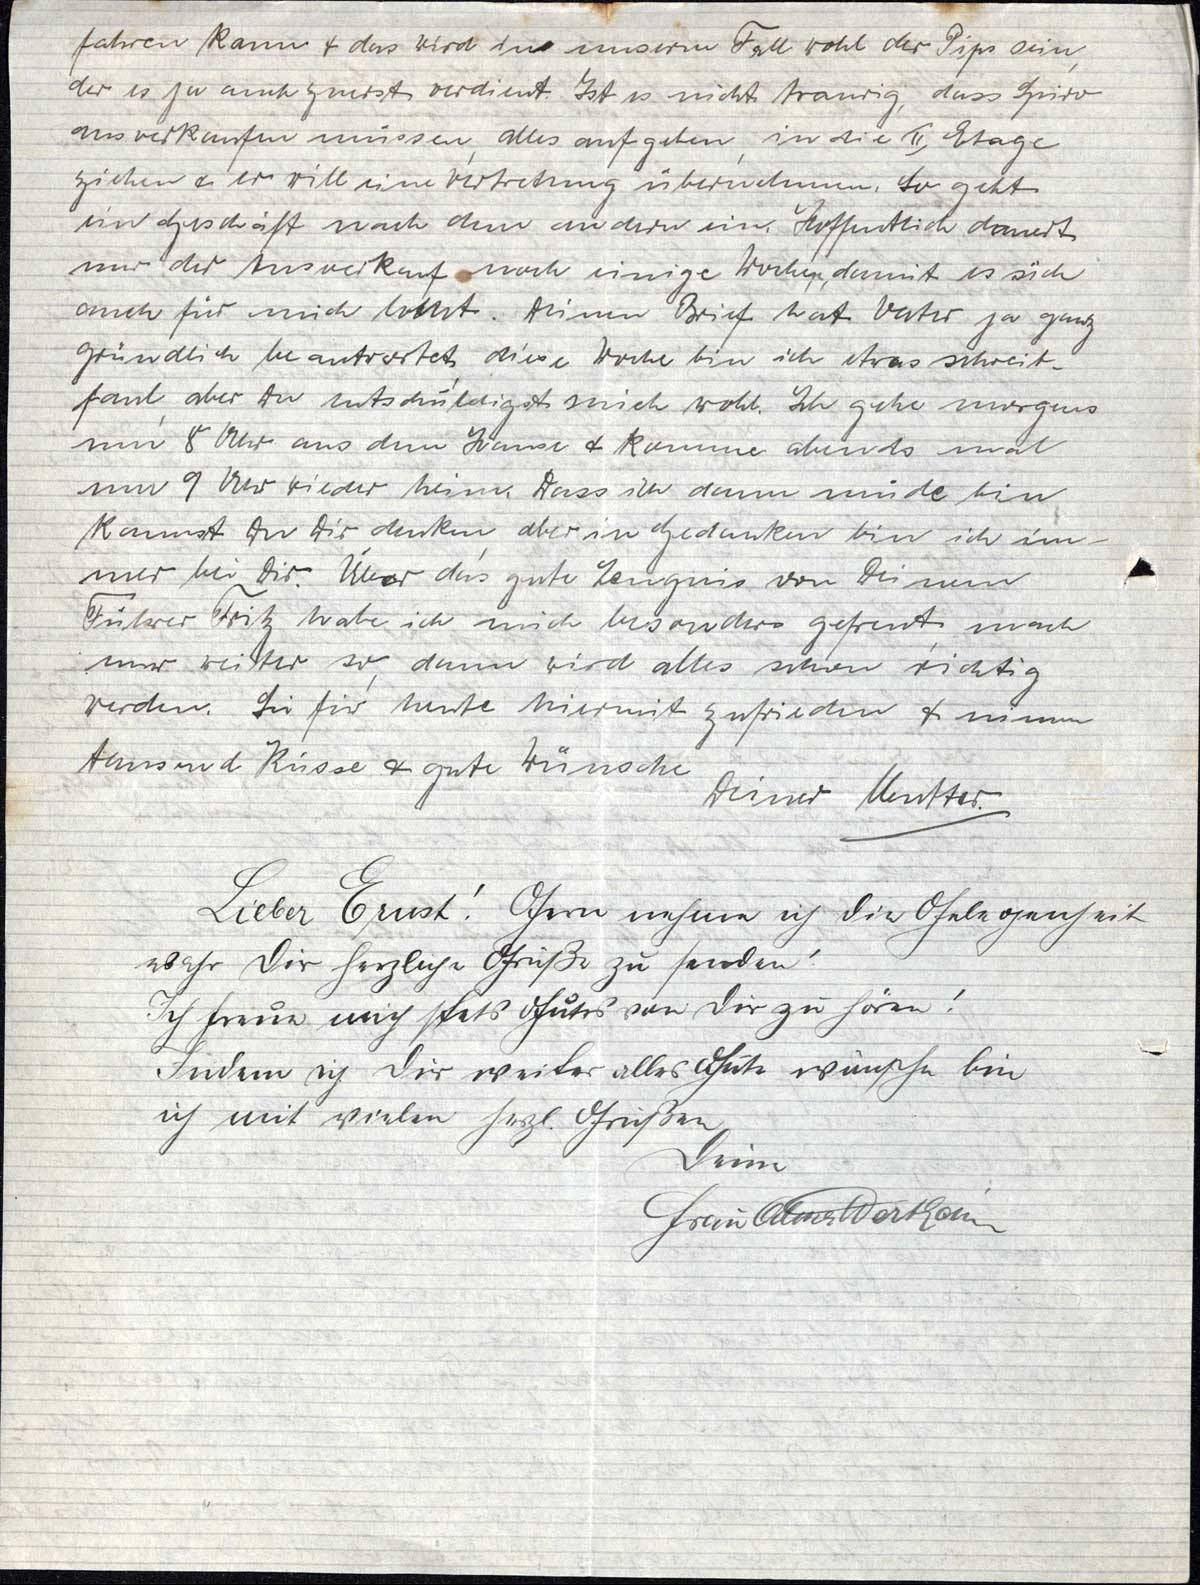 fahren kann & das wird in unserm Fall wohl der Pips sein,
der es ja auch zuerst verdient. Ist es nicht traurig, dass Spiro
ausverkaufen müssen, alles aufgeben, in die II. Etage
ziehen & er will eine Vertretung übernehmen. So geht
ein Geschäft nach dem andern ein. Hoffentlich dauert
nur der Ausverkauf noch einige Wochen, damit es sich
auch für mich lohnt. Deinen Brief hat Vater ja ganz
gründlich beantwortet, diese Woche bin ich etwas schreib-
faul, aber Du entschuldigst mich wohl. Ich gehe morgens
um 8 Uhr aus dem Hause & komme abends mal
um 9 Uhr wieder heim. Dass ich dann müde bin
kannst Du Dir denken, aber in Gedanken bin ich im-
mer bei Dir. Über das gute Zeugnis von Deinem
Führer Fritz habe ich mich besonders gefreut mach
nur weiter so, dann wird alles schon richtig
werden. Sei für heute hiermit zufrieden & nimm
tausend Küsse & gute Wünsche
Deiner Mutter.
Lieber Ernst! Gern nehme ich die Gelegenheit
wahr Dir herzliche Grüße zu senden!
Ich freue mich stets Gutes von Dir zu hören!
Indem ich Dir weiter alles Gute wünsche bin
ich mit vielen herzl. Grüßen
Deine
Frau Wertheim